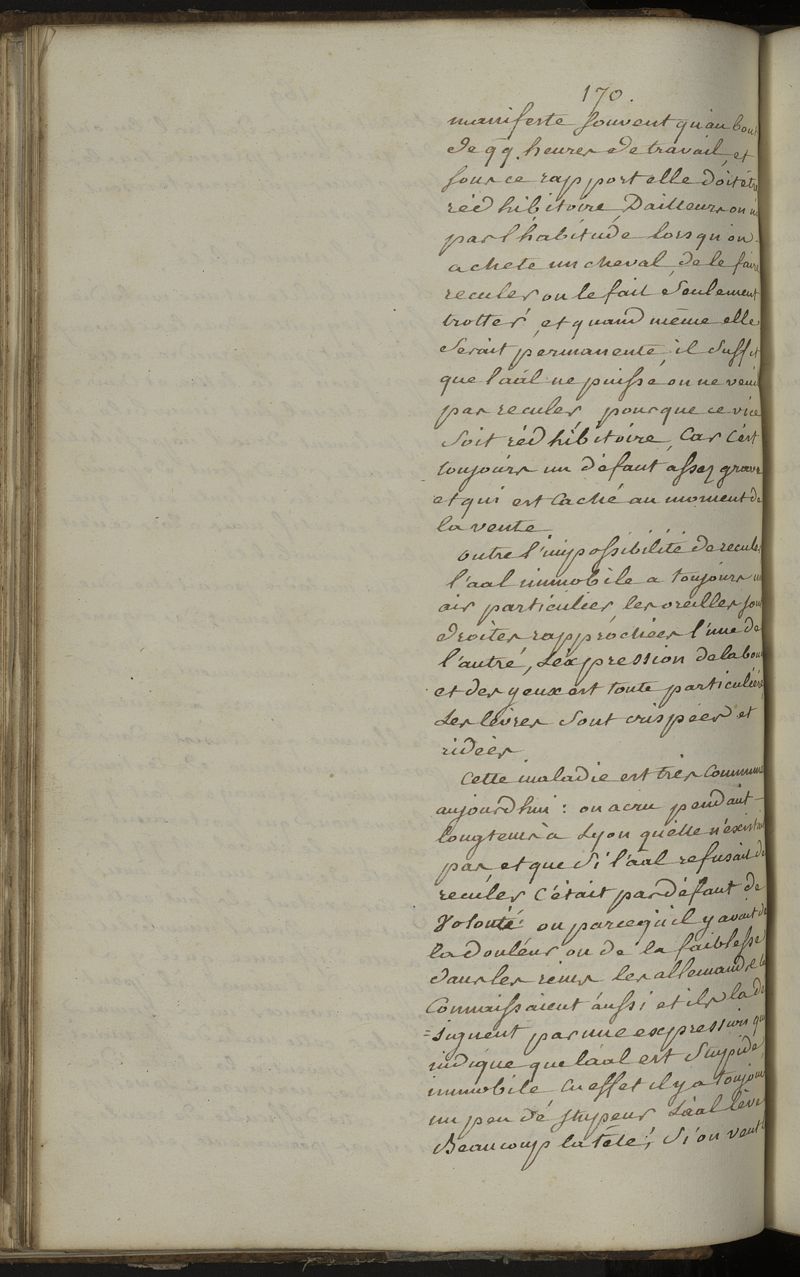 170.
manifeste souvent qu'au bout
de qq. heures de travail, et
sous ce rapport elle doit être
rédhibitoire, D'ailleurs on n'a
pas l'habitude lorsqu'on
achete un cheval, de le faire
reculer on le fait seulement
trotter, et quand même elle
serait permanente, il suffit
que l'aal ne puisse ou ne veuille
pas reculer pour que ce vice
soit rédhibitoire, Car c'est
toujours un défaut assez grave
et qui est Caché au moment de
la vente
outre l'impossibilité de reculer
l'aal immobile a toujours un
air particulier les oreilles sont
droites rapprochées l'une de
l'autre, L'expression de la bouche
et des yeux est toute particulière
Les lèvres sont crispées et
ridées
Cette maladie est très Commune
aujourd'hui : on a cru pendant
longtems à Lyon qu'elle n'existait
pas et que si l'aal refusait de
reculer C'était par défaut de
Volonté ou parcequ'il y avait de
la douleur ou de la faiblesse
dans les reins les allemands la
Connaissaient aussi et ils la dé
=signent par une expression qui
indique que l'aal est Stupide,
immobile En effet il y a toujours
un peu de stupeur L'aal lève
Beaucoup la tête, Si on veut